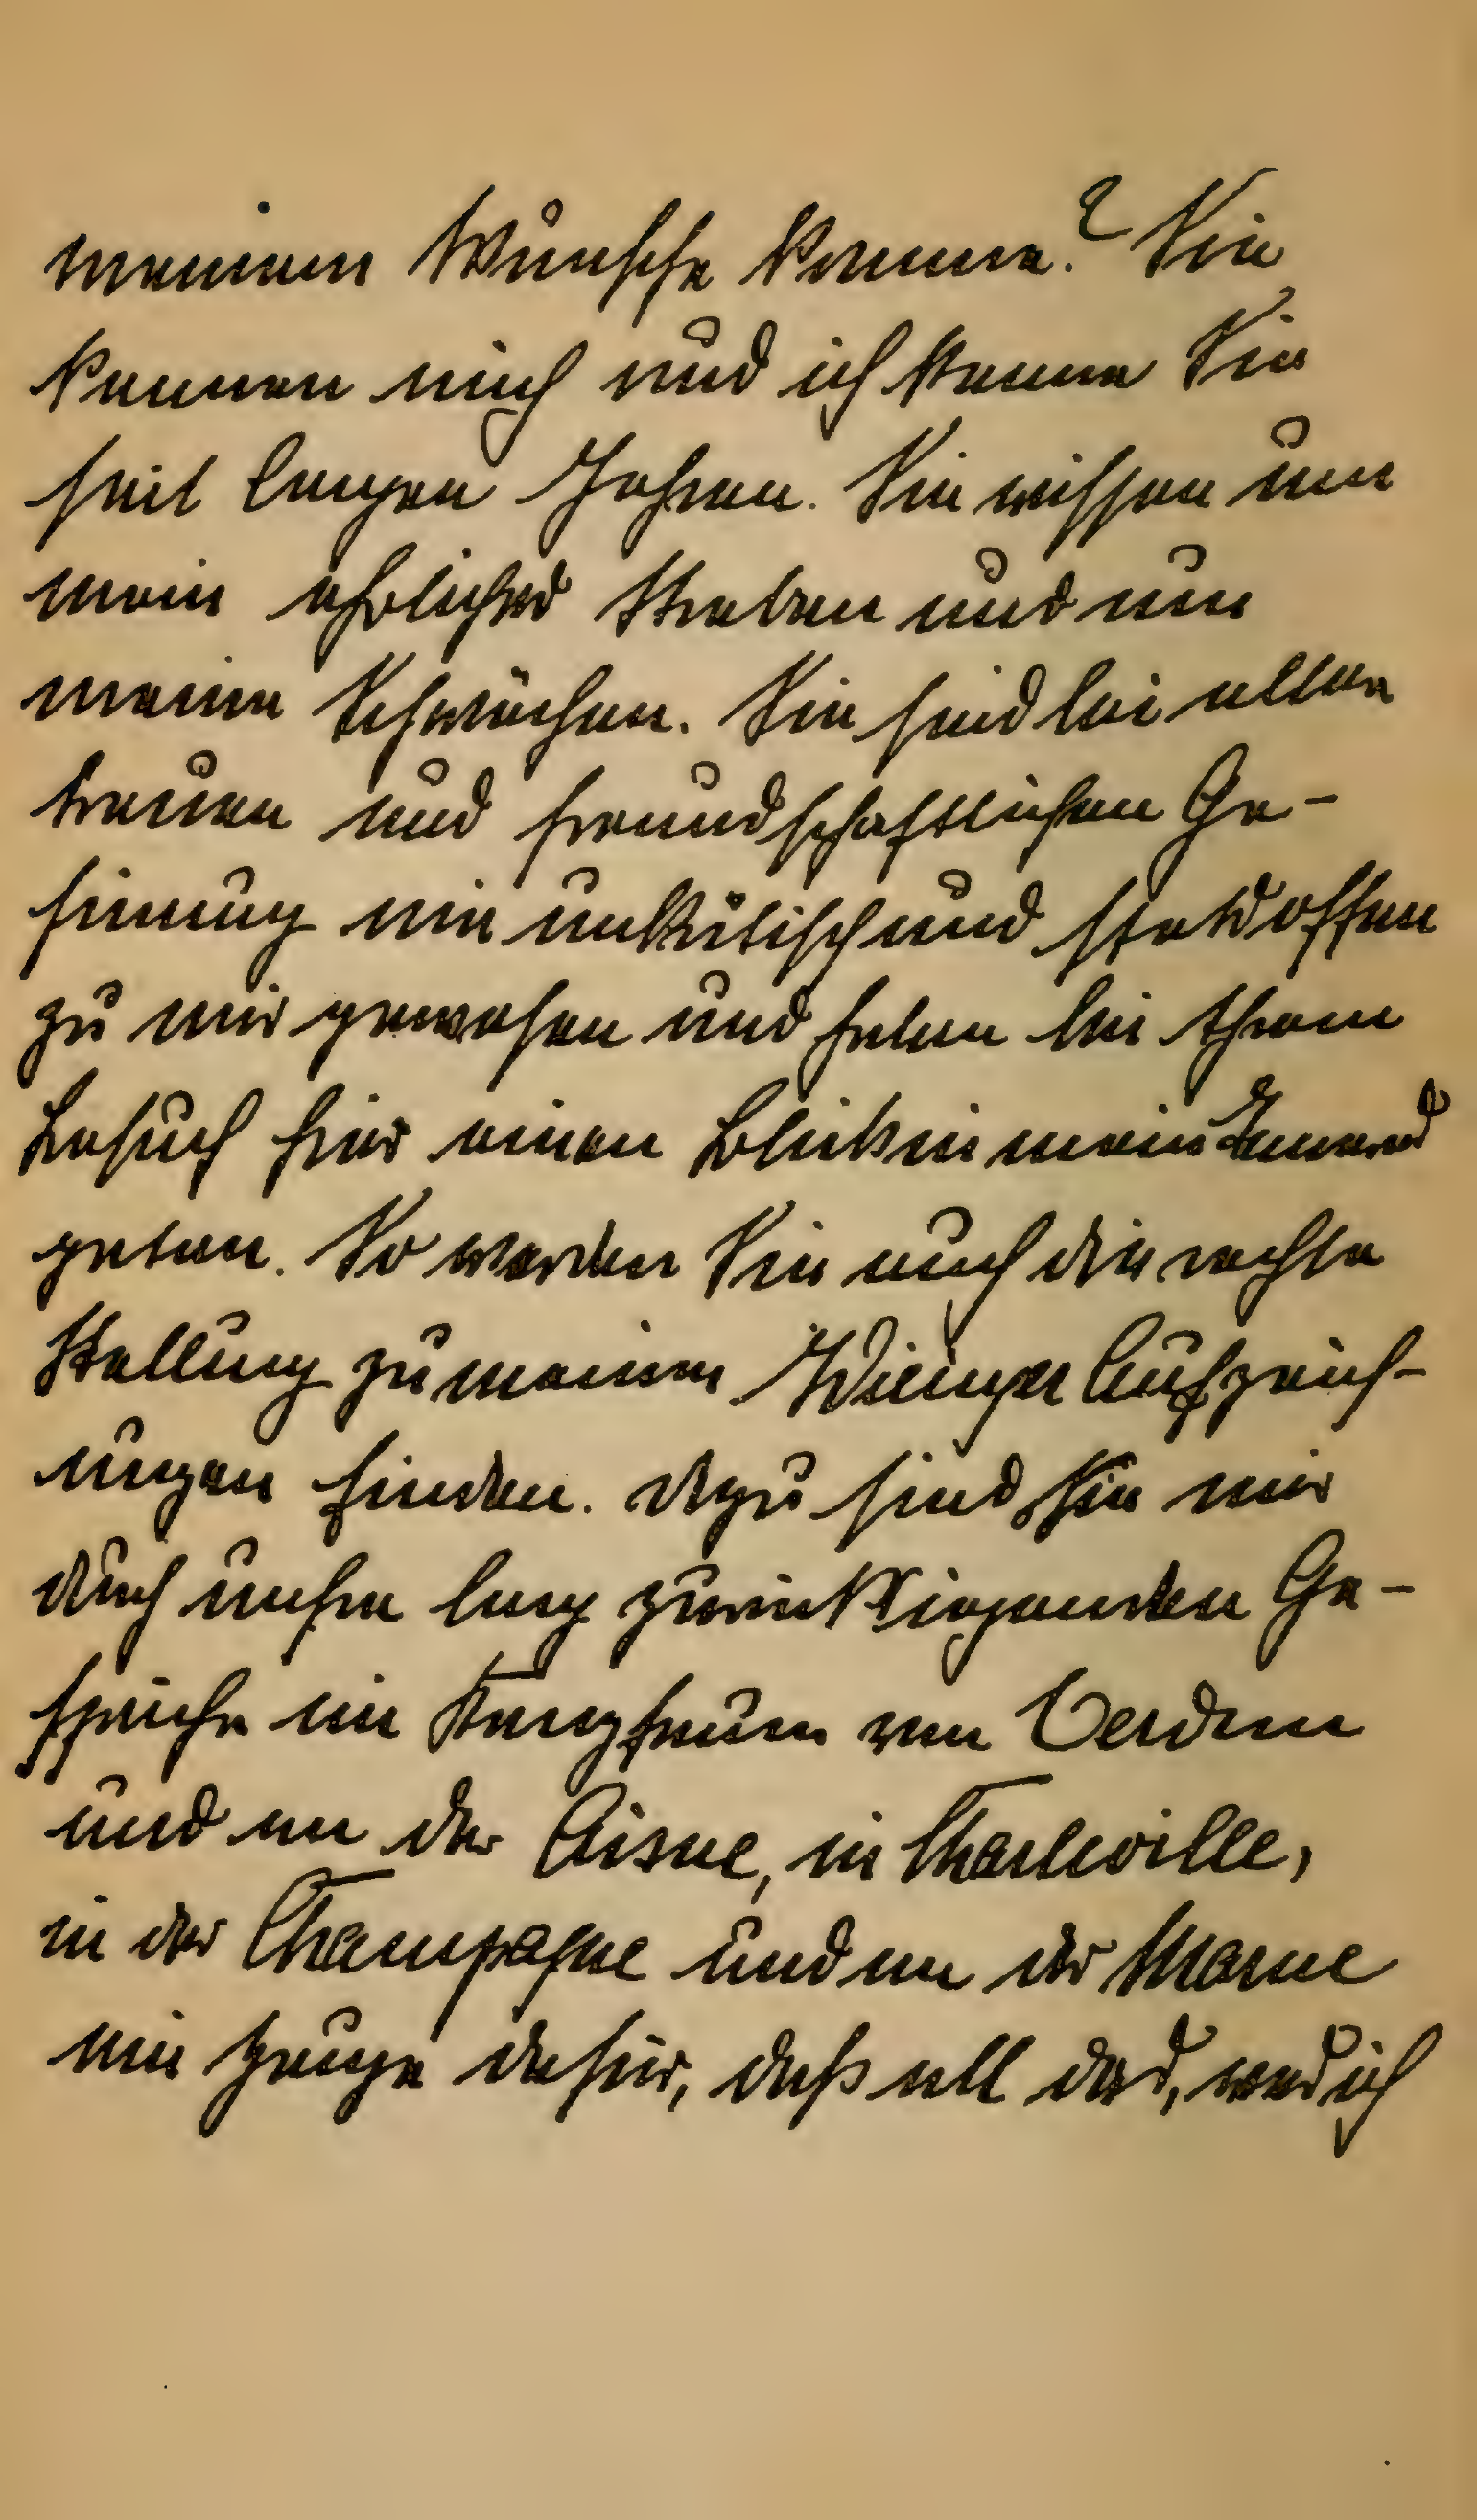 meinem Wunsche komme? Sie
kennen mich und ich kenne Sie
seit langen Jahren. Sie wissen um
mein ehrliches Streben und um
meine Schwächen. Sie sind bei aller
treuen und freundschaftlichen Ge-
sinnung nie unkritisch und stets offen
zu mir gewesen und haben bei Ihrem
Besuch hier einen Blick in mein Inneres
getan. So werden Sie auch die rechte
Stellung zu meinen Wieinger Aufzeich-
nungen finden. Dazu sind Sie mir
durch unsre lang zurückliegenden Ge-
spräche im Kampfraum von Verdun
und an der Aisne, in Charleville,
in der Champagne und an der Marne
ein Zeuge dafür, daß all das, was ich